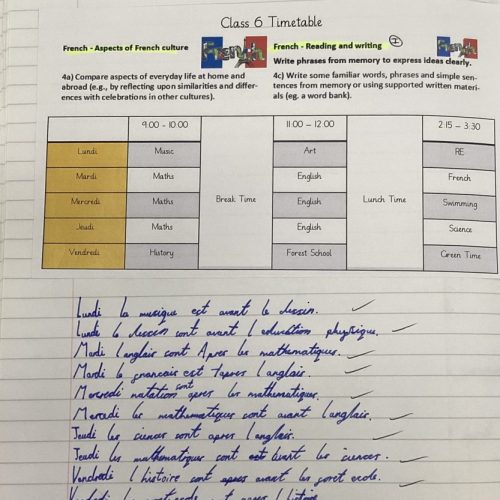 Class 6 Timetable
French - Aspects of French culture
French
French - Reading and writing
I
French
Write phrases from memory to express ideas clearly.
4a) Compare aspects of everyday life at home and
abroad (e.g., by reflecting upon similarities and differ-
ences with celebrations in other cultures).
4c) Write some familiar words, phrases and simple sen-
tences from memory or using supported written materi-
als (eg. a word bank).
9:00 - 10:00
11:00 - 12:00
2:15 - 3:30
Lundi
Music
Break Time
Art
Lunch Time
RE
Mardi
Maths
English
French
Mercredi
Maths
English
Swimming
Jeudi
Maths
English
Science
Vendredi
History
Forest School
Green Time
Lundi la musique est avant le dessin.
Lundi le dessin sont avant l'education physique.
Mardi l'anglais sont Apres les mathematiques.
Mardi le francais est apres l'anglais.
Mercredi natation sont apres les mathematiques.
Mercredi les mathematiques sont avant l'anglais.
Jeudi les ciences sont apres l'anglais.
Jeudi les mathematiques sont avant les ciences.
Vendredi l'histoire sont avant les foret ecole.